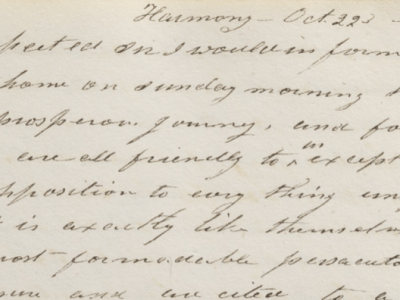 Harmony - Oct. 22d
pected Sir I would in form
home on sunday morning
prosperou journey, and fo
are all friendly to us except
pposition to evry thing un
is exactly like themselv
ost formadable persecuto
and are cited to a